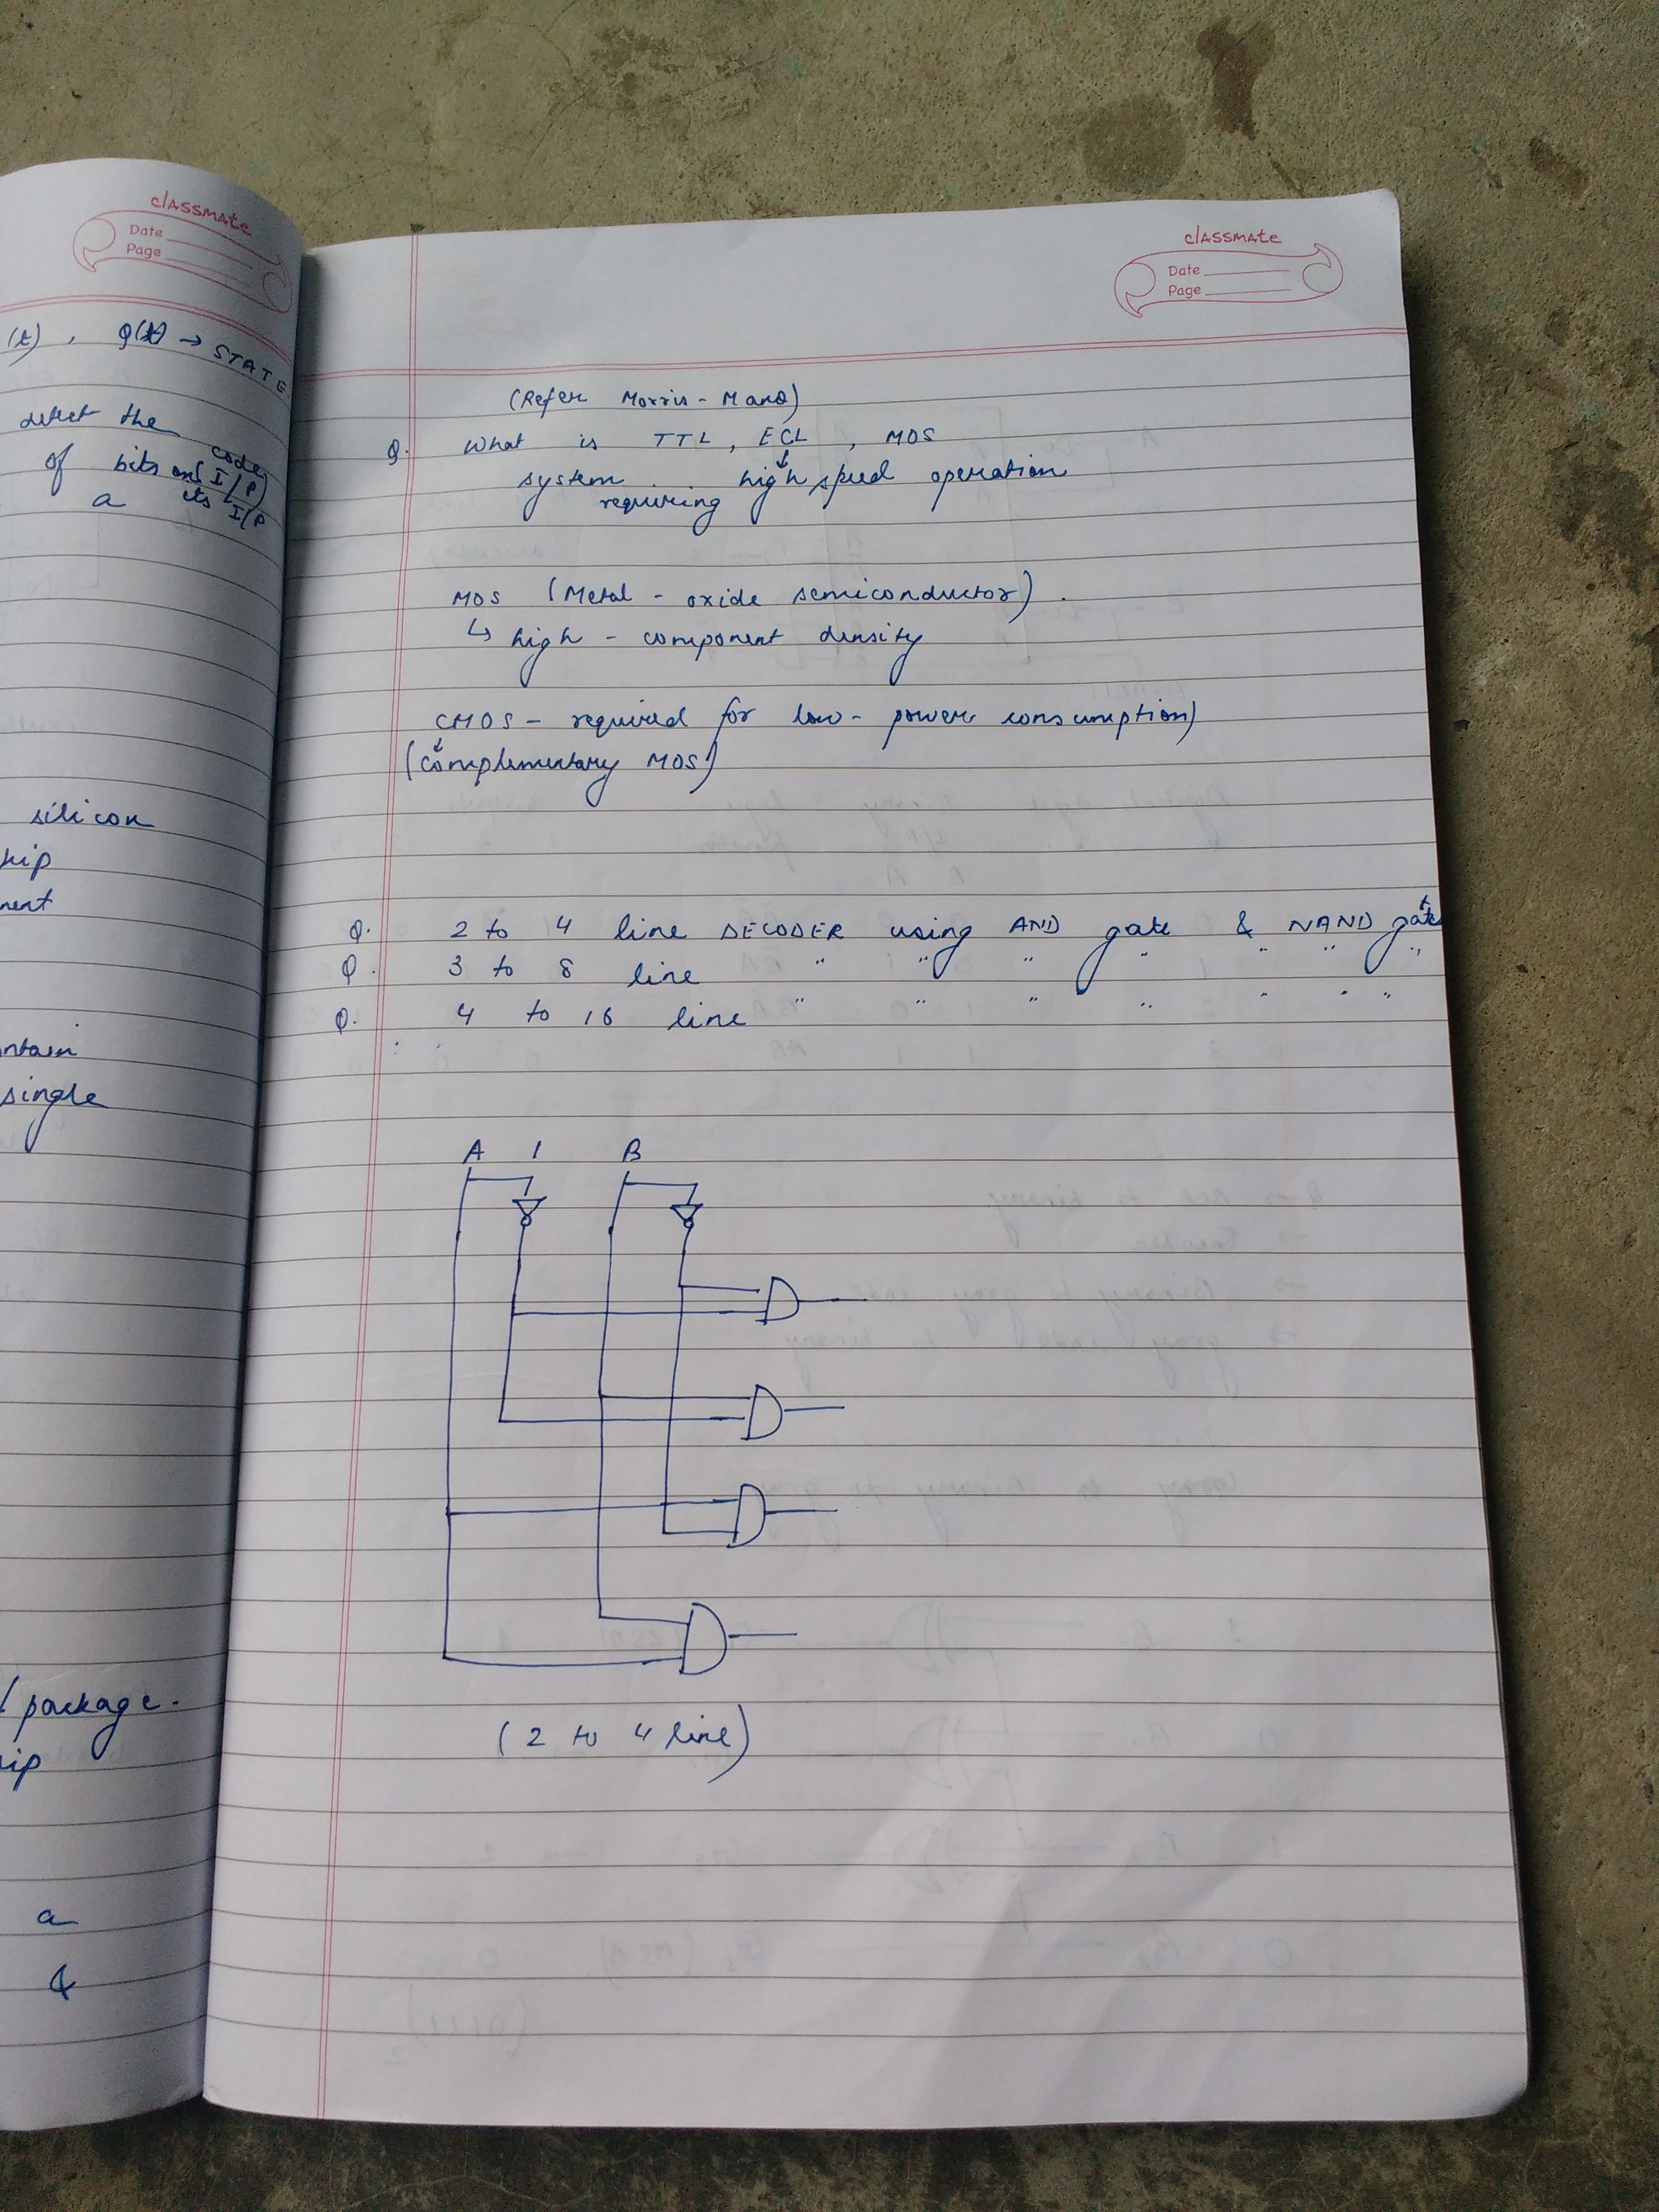 classmate
Date
Page
(t), Q(t) → STATE
detect the
code
of bits on (I/P)
a its I/P
silicon
hip
nent
ntain
single
package.
ip
a
&
classmate
Date
Page
(Refer Morris - Mano)
Q. What is TTL, ECL, MOS
↓
system high speed operation
requiring
MOS (Metal - oxide semiconductor).
↳ high - component density
CMOS - required for low - power consumption)
↓
(complementary MOS)
Q. 2 to 4 line DECODER using AND gate & NAND gate
Q. 3 to 8 line " " " " " " "
Q. 4 to 16 line " " " " " " "
A 1 B
(2 to 4 line)